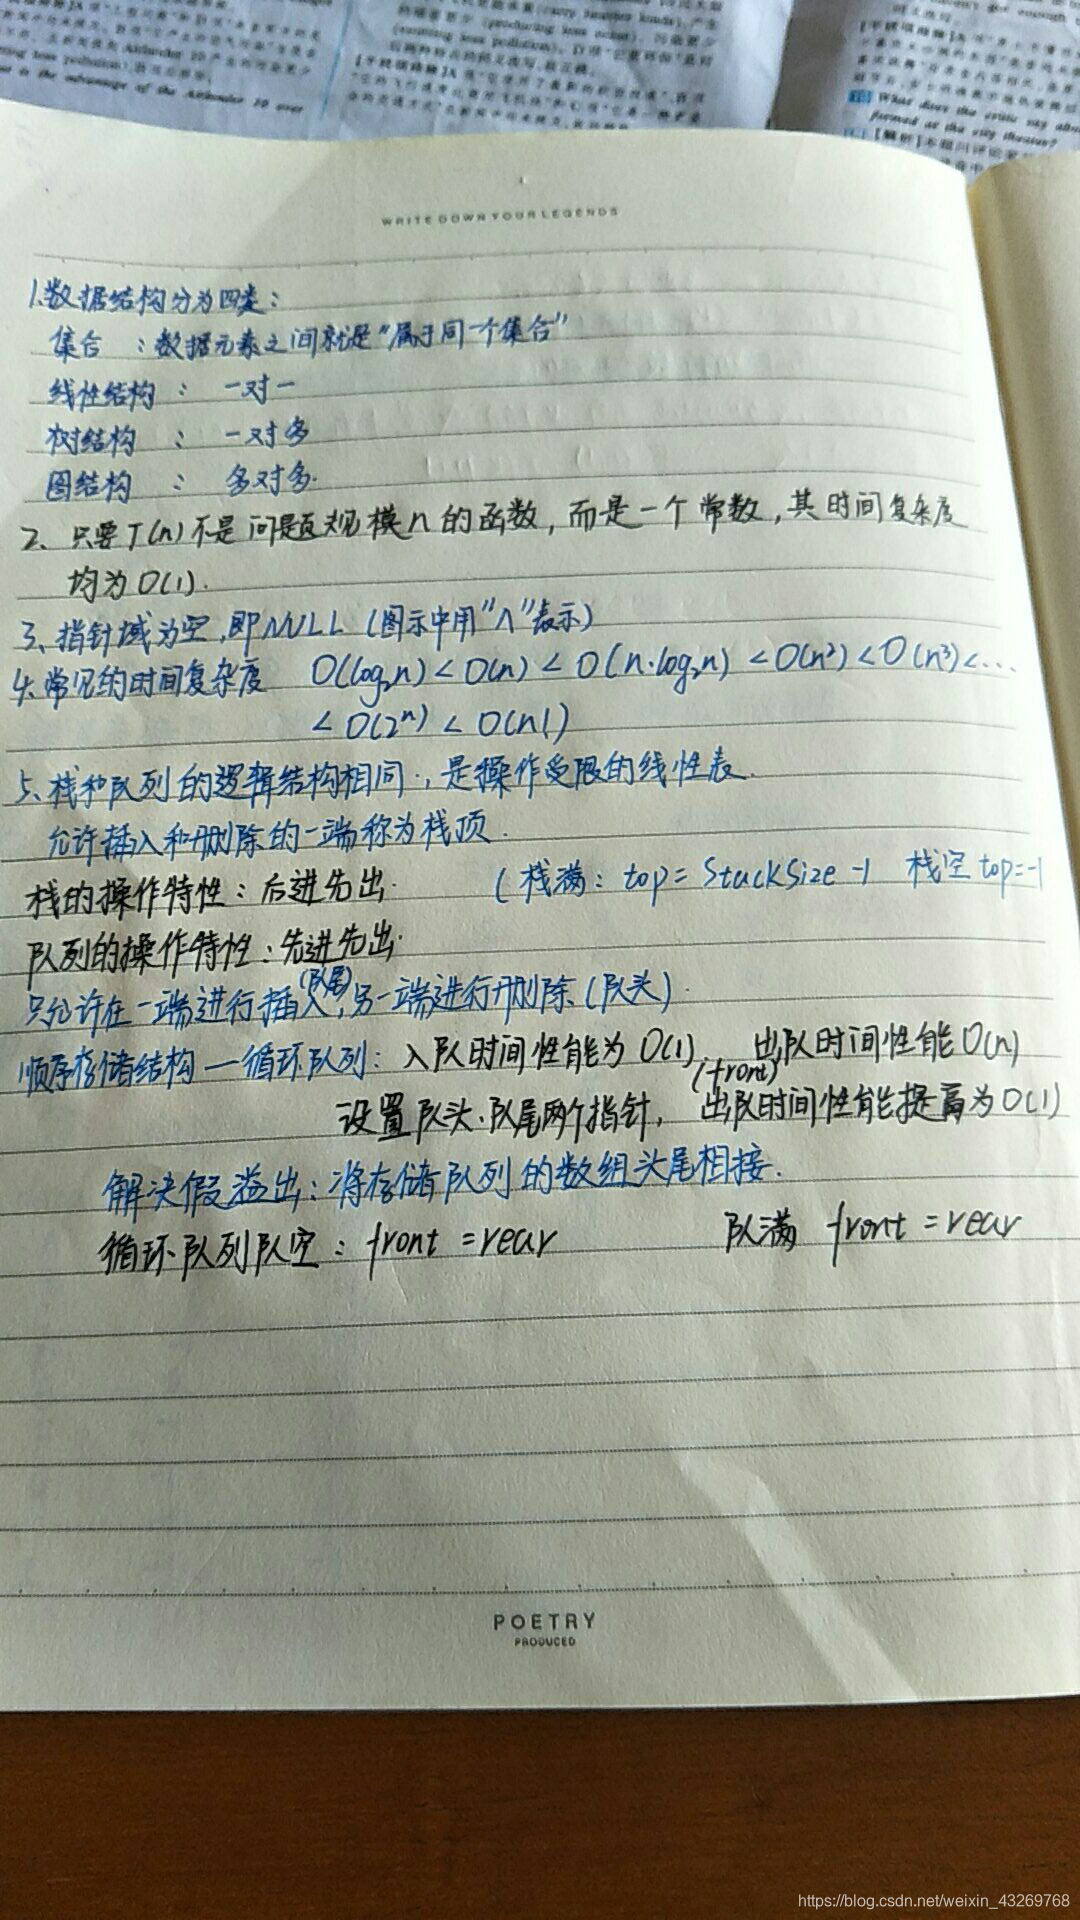 the advantage of the Airbnder 10 over
What does the critic say abou
formed at the city theater?
WRITE DOWN YOUR LEGENDS
1.数据结构分为四类：
集合 ：数据元素之间就是“属于同一个集合”
线性结构 ： 一对一
树结构 ： 一对多
图结构 ： 多对多.
2、只要T(n)不是问题规模n的函数，而是一个常数，其时间复杂度
均为O(1).
3、指针域为空，即NULL（图示中用“∧”表示）
4、常见的时间复杂度 O(log₂n)<O(n)<O(n·log₂n)<O(n²)<O(n³)<…
<O(2ⁿ)<O(n!)
5、栈和队列的逻辑结构相同.，是操作受限的线性表.
允许插入和删除的一端称为栈顶.
栈的操作特性：后进先出. （栈满：top=StackSize-1 栈空top=-1
队列的操作特性：先进先出.
只允许在一端进行插入(队尾)，另一端进行删除(队头).
顺序存储结构—循环队列：入队时间性能为O(1). 出队时间性能O(n)
(front)
设置队头.队尾两个指针， 出队时间性能提高为O(1)
解决假溢出：将存储队列的数组头尾相接.
循环队列队空：front=rear 队满 front=rear
POETRY
PRODUCED
https://blog.csdn.net/weixin_43269768